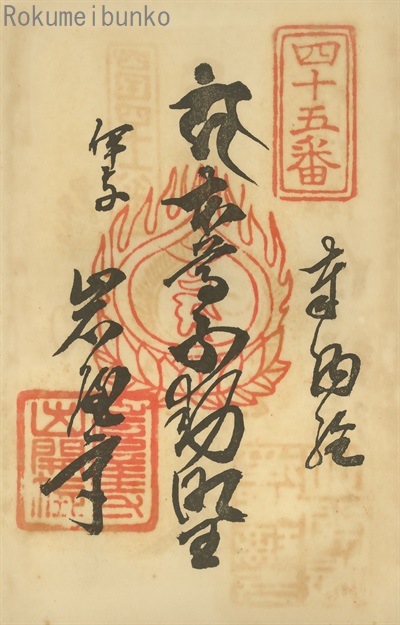 Rokumeibunko
四十五番
奉納経
本尊不動明王
伊予
岩屋寺